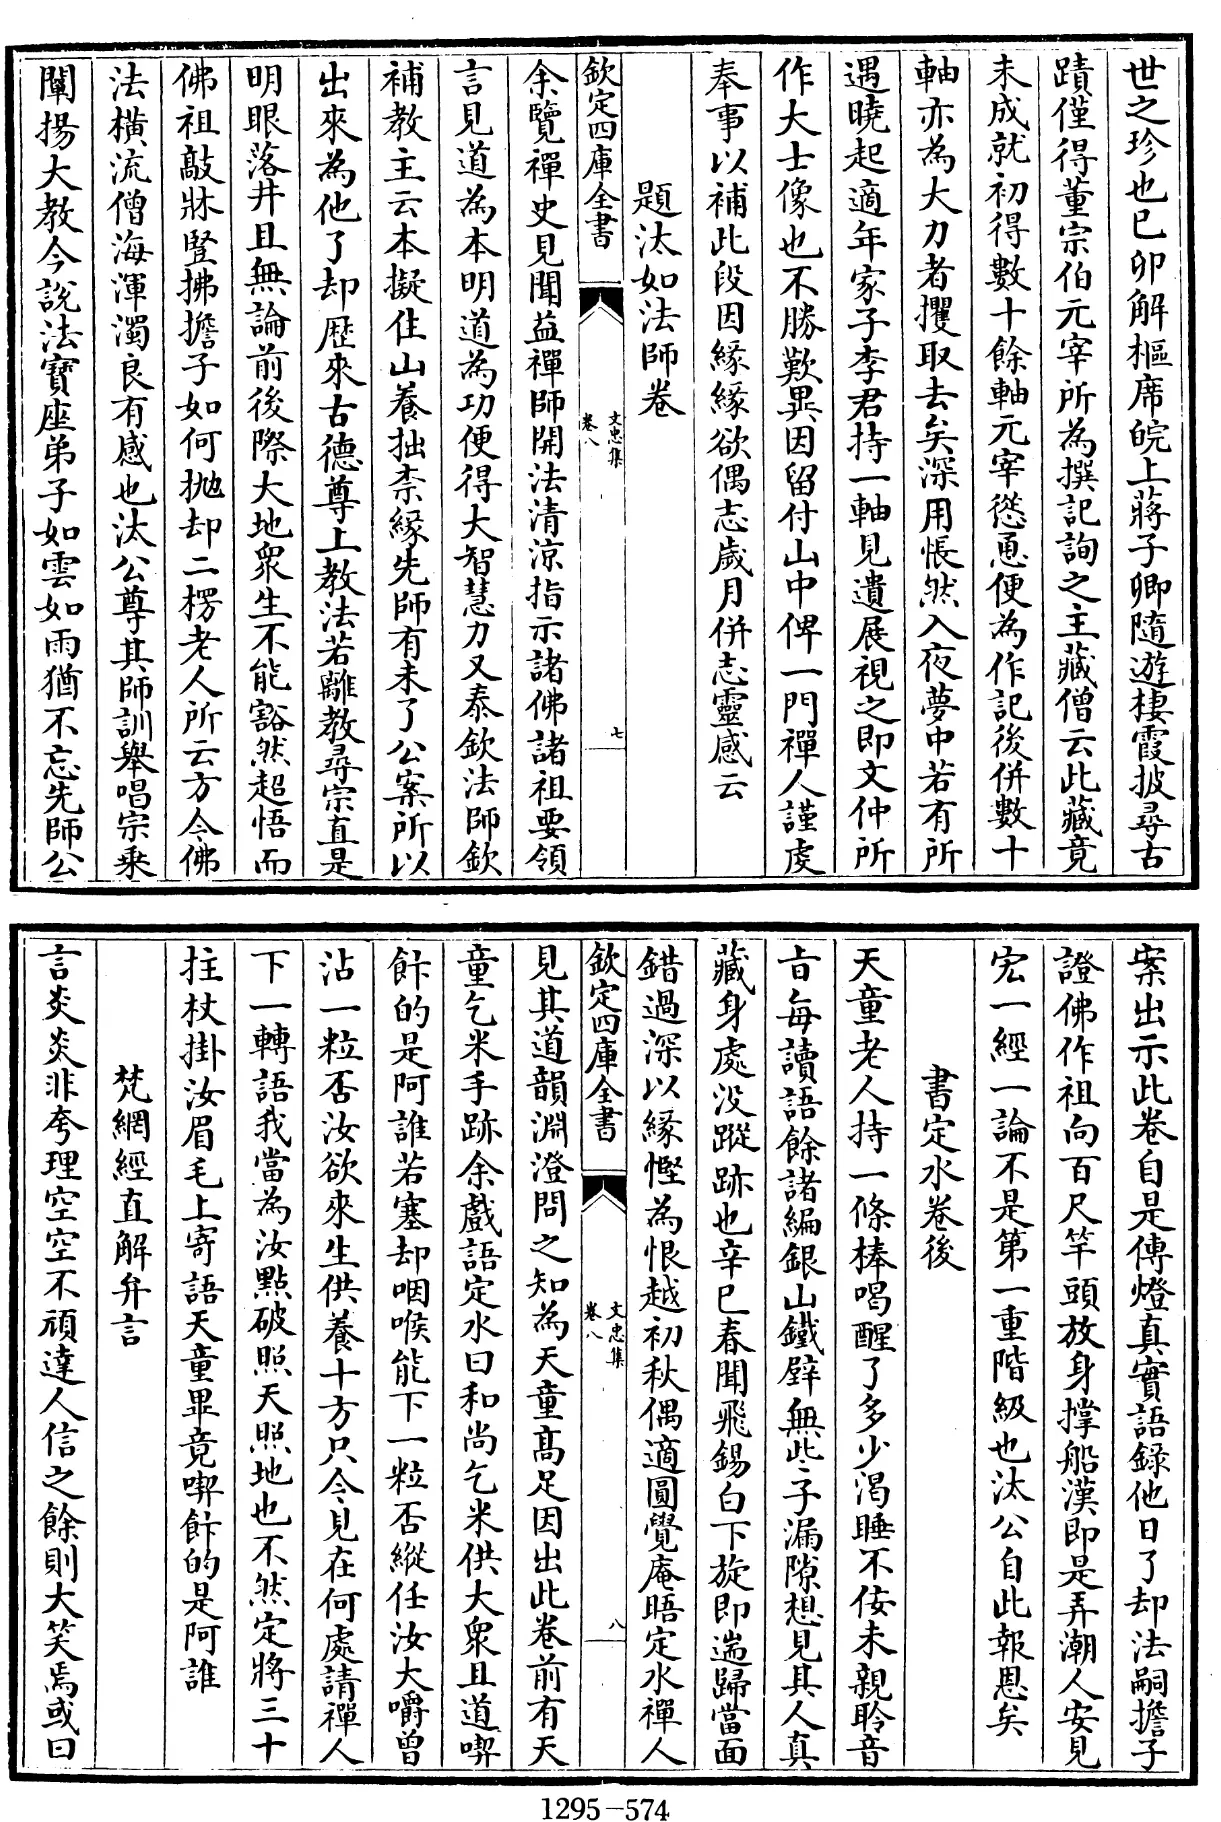 世之珍也已卯解樞席皖上蔣子卿隨遊棲霞披尋古
蹟僅得董宗伯元宰所為撰記詢之主藏僧云此藏竟
未成就初得數十餘軸元宰慫恿便為作記後併數十
軸亦為大力者攫取去矣深用悵然入夜夢中若有所
遇曉起適年家子李君持一軸見遺展視之即文仲所
作大士像也不勝歎異因留付山中俾一門禪人謹䖏
奉事以補此段因緣緣欲偶志歲月併志靈感云
題汰如法師卷
欽定四庫全書
文忠集
卷八
七
余覽禪史見聞益禪師開法清涼指示諸佛諸祖要領
言見道為本明道為功便得大智慧力又泰欽法師欽
補教主云本擬住山養拙柰緣先師有未了公案所以
出來為他了却歷來古德尊上教法若離教尋宗直是
明眼落井且無論前後際大地衆生不能豁然超悟而
佛祖敲牀豎拂擔子如何拋却二楞老人所云方今佛
法橫流僧海渾濁良有感也汰公尊其師訓舉唱宗乘
闡揚大教今說法寶座弟子如雲如雨猶不忘先師公
案出示此卷自是傳燈真實語錄他日了却法嗣擔子
證佛作祖向百尺竿頭放身撐船漢即是弄潮人安見
宏一經一論不是第一重階級也汰公自此報恩矣
書定水卷後
天童老人持一條棒喝醒了多少渴睡不佞未親聆音
旨每讀語餘諸編銀山鐵壁無些子漏隙想見其人真
藏身處没蹤跡也辛巳春聞飛錫白下旋即遄歸當面
錯過深以緣慳為恨越初秋偶適圓覺庵晤定水禪人
欽定四庫全書
文忠集
卷八
八
見其道韻淵澄問之知為天童髙足因出此卷前有天
童乞米手跡余戲語定水曰和尚乞米供大衆且道喫
飰的是阿誰若塞却咽喉能下一粒否縱任汝大嚼曾
沾一粒否汝欲來生供養十方只今見在何處請禪人
下一轉語我當為汝點破照天照地也不然定將三十
拄杖掛汝眉毛上寄語天童畢竟喫飰的是阿誰
梵網經直解弁言
言炎炎非夸理空空不頑達人信之餘則大笑焉或曰
1295-574